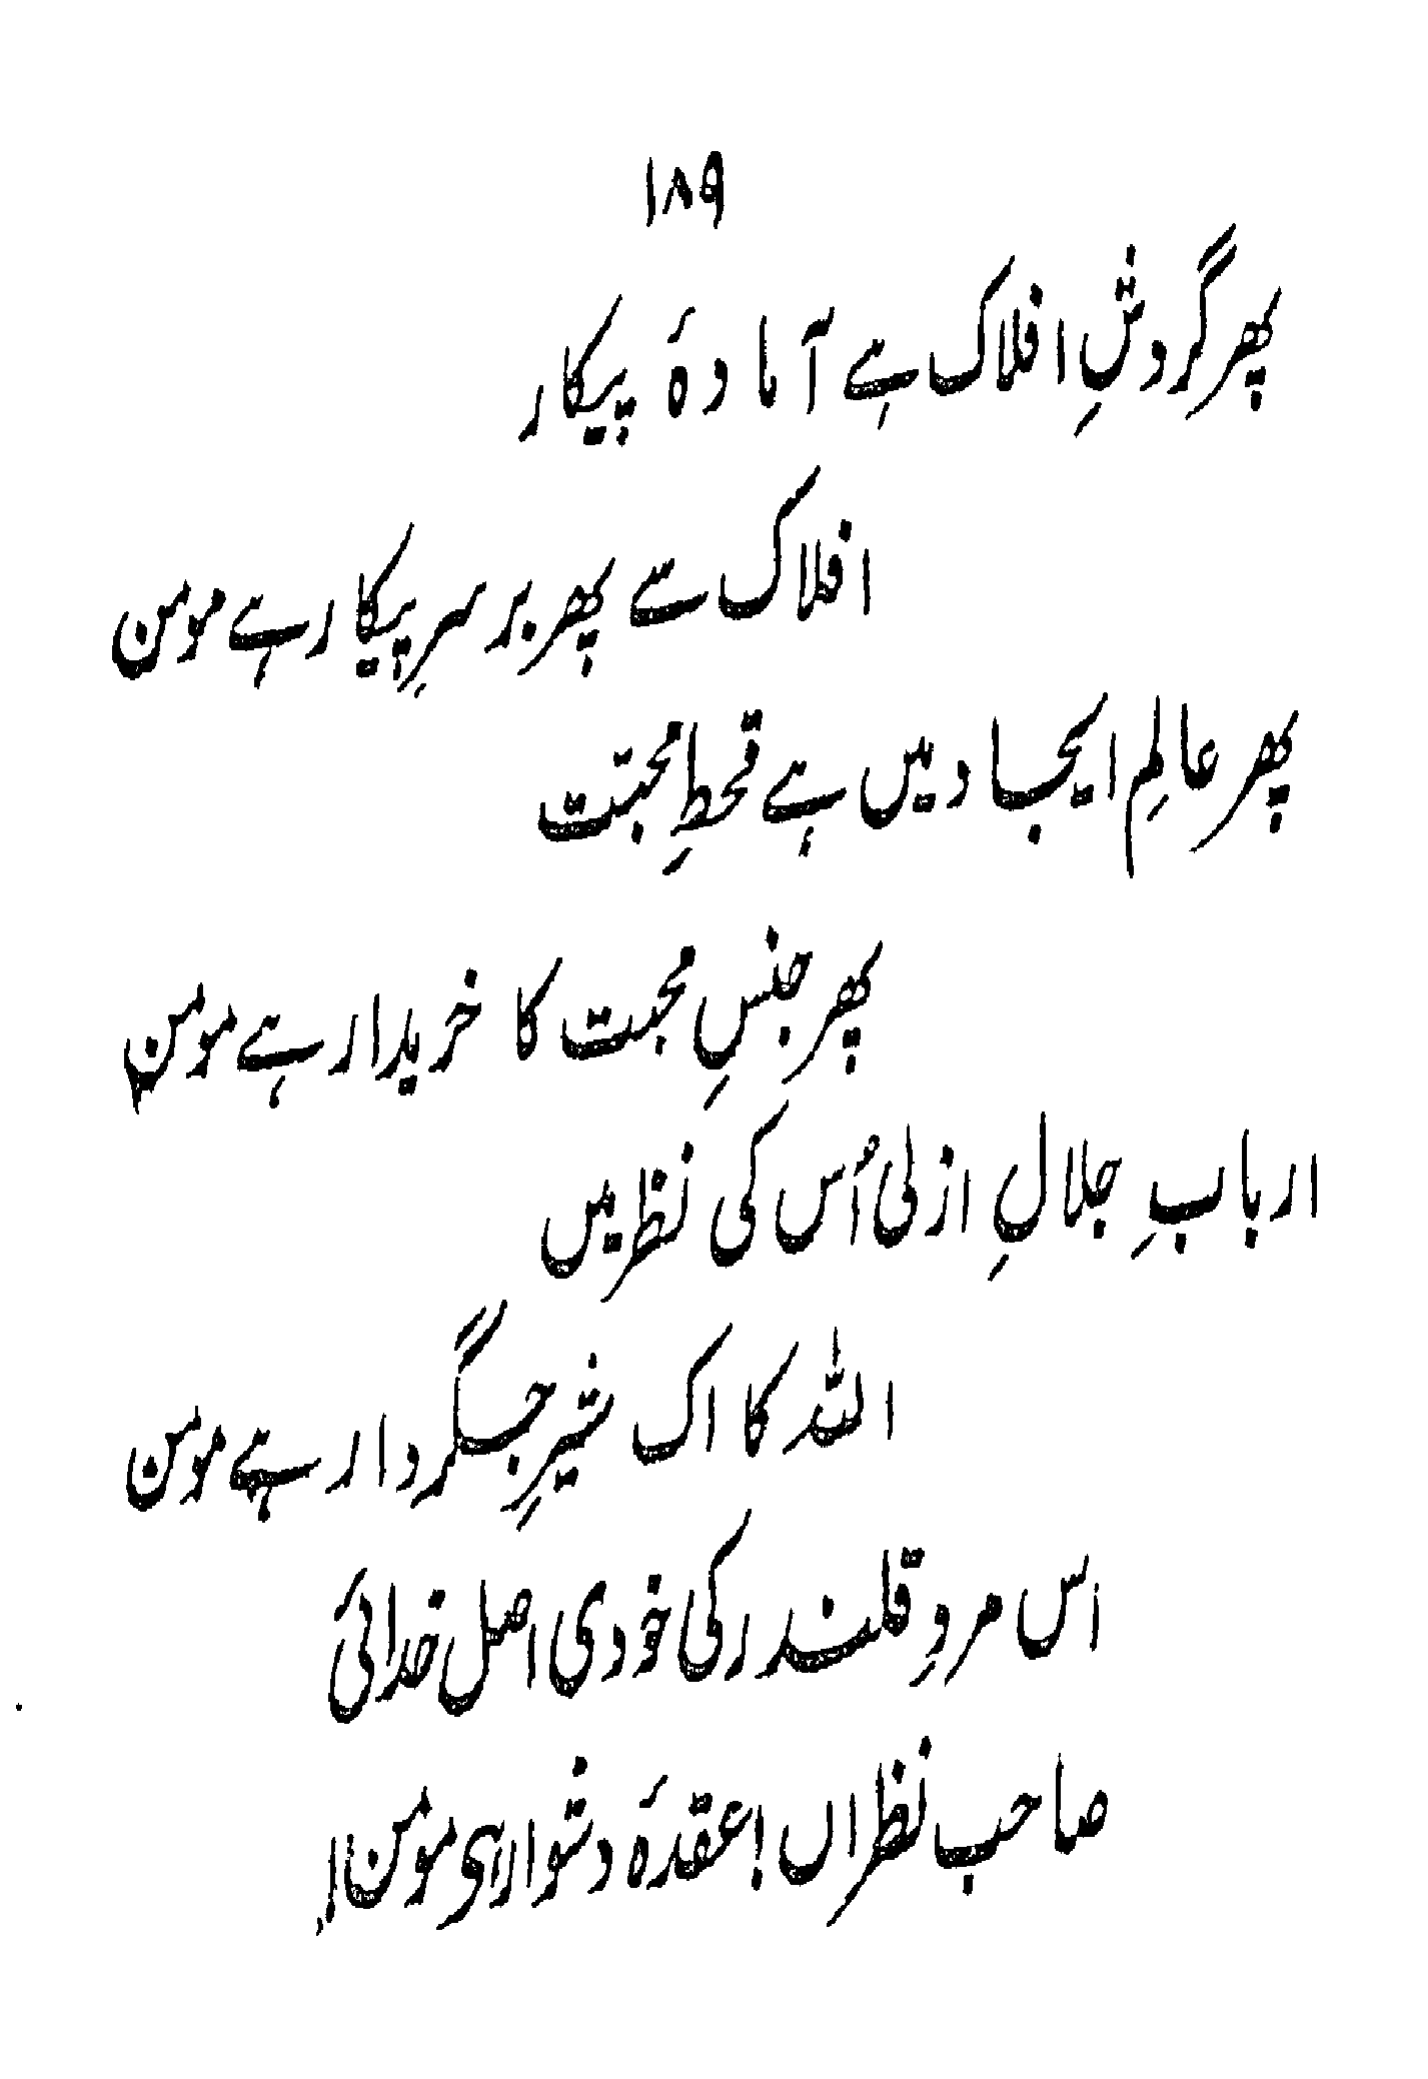 ۱۸۹
پھر گردشِ افلاک ہے آمادۂ پیکار
افلاک سے پھر بر سرِ پیکار ہے مومن
پھر عالمِ ایجاد میں ہے قحطِ محبت
پھر جنسِ محبت کا خریدار ہے مومن
اربابِ جلالِ ازلی اُس کی نظر میں
اللہ کا اک شیرِ جگردار ہے مومن
اس مردِ قلندر کی خودی اصل خدائی
صاحب نظراں! عقدۂ دشوار ہی مومن!